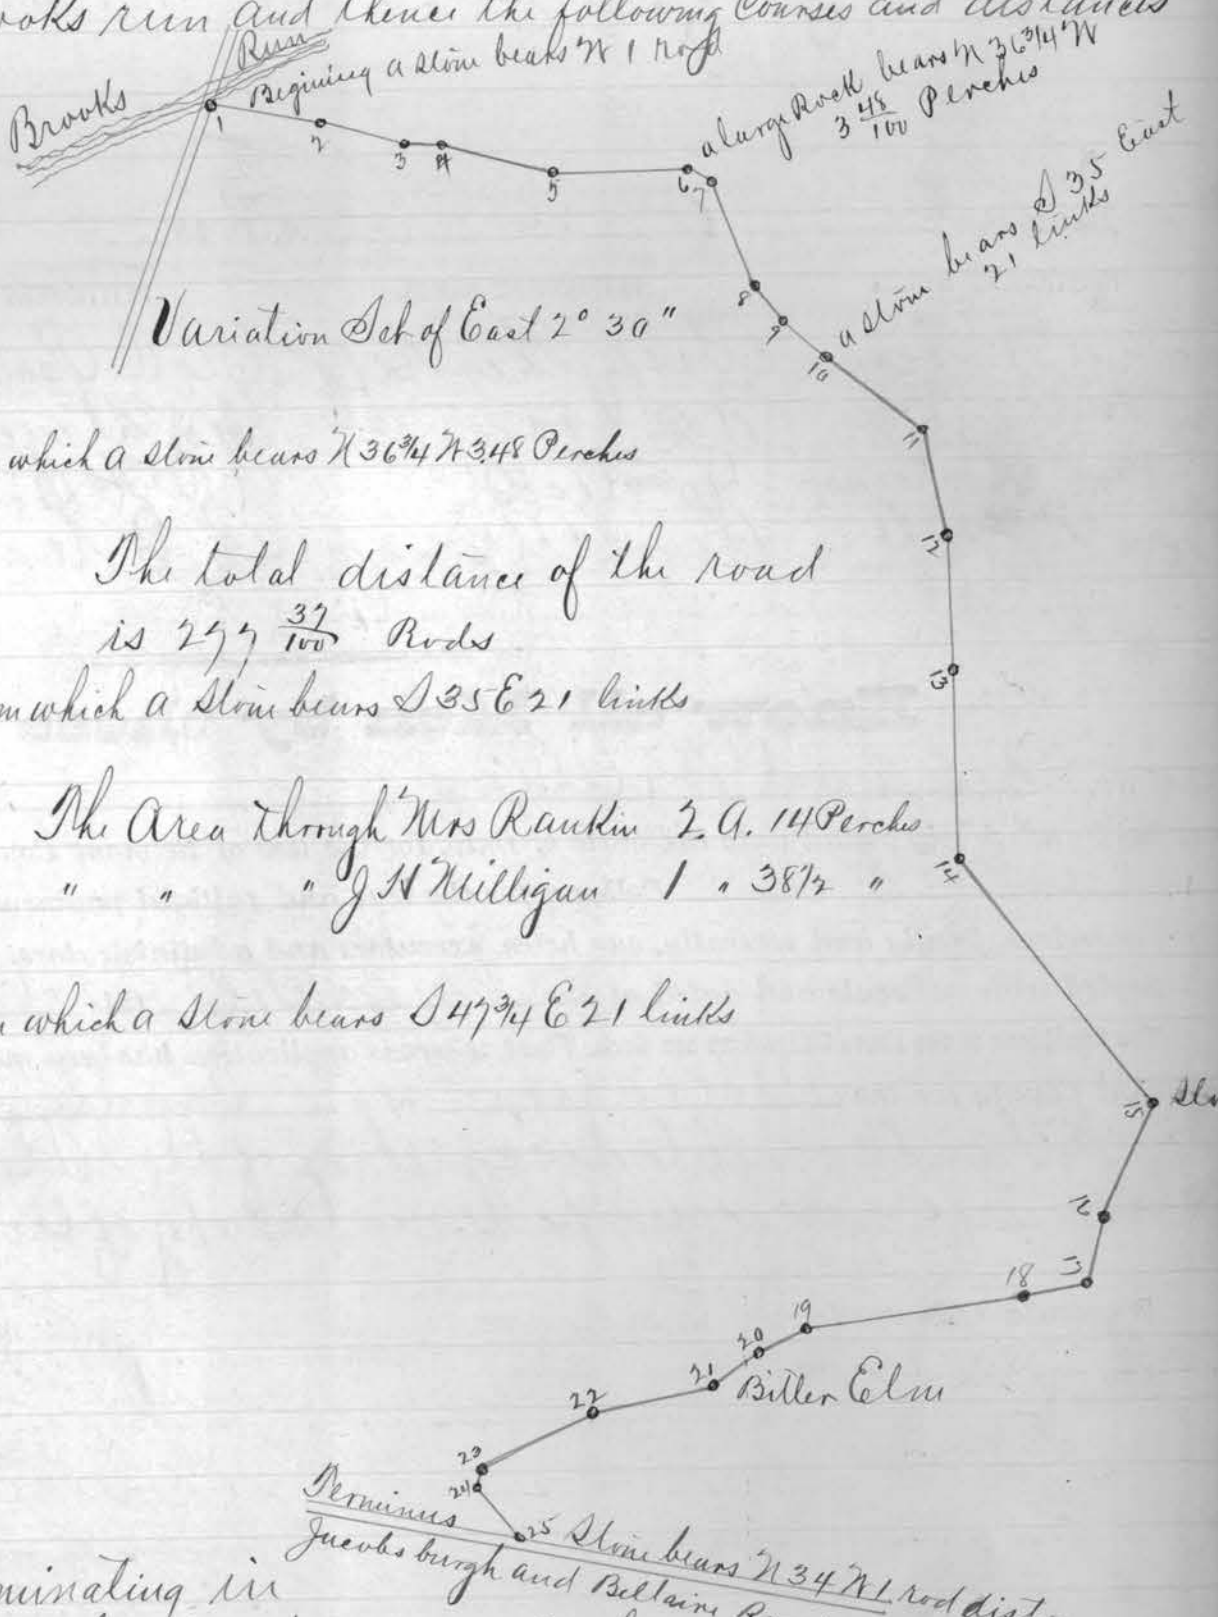 ooks run and thence the following Courses and distances
Brooks Run
Begining a stone bears N 1 rod
a large Rock bears N 36 3/4 W
3 48/100 Perches
1 2 3 4 5 6 7 8 9 10 11 12 13 14 15 16 17 18 19 20 21 22 23 24 25
a stone bears S 35 East
21 links
Variation Set of East 2° 30"
which a stone bears N 36 3/4 W 3.48 Perches
The total distance of the road
is 277 37/100 Rods
m which a stone bears S 35 E 21 links
The Area through Mrs Rankin 2 A. 14 Perches
" " " J H Milligan 1 " 38 1/2 "
which a stone bears S 47 3/4 E 21 links
Sto
Bitter Elm
Terminus
Stone bears N 34 W 1 rod dist
Jacobsburgh and Bellaire R
minating in